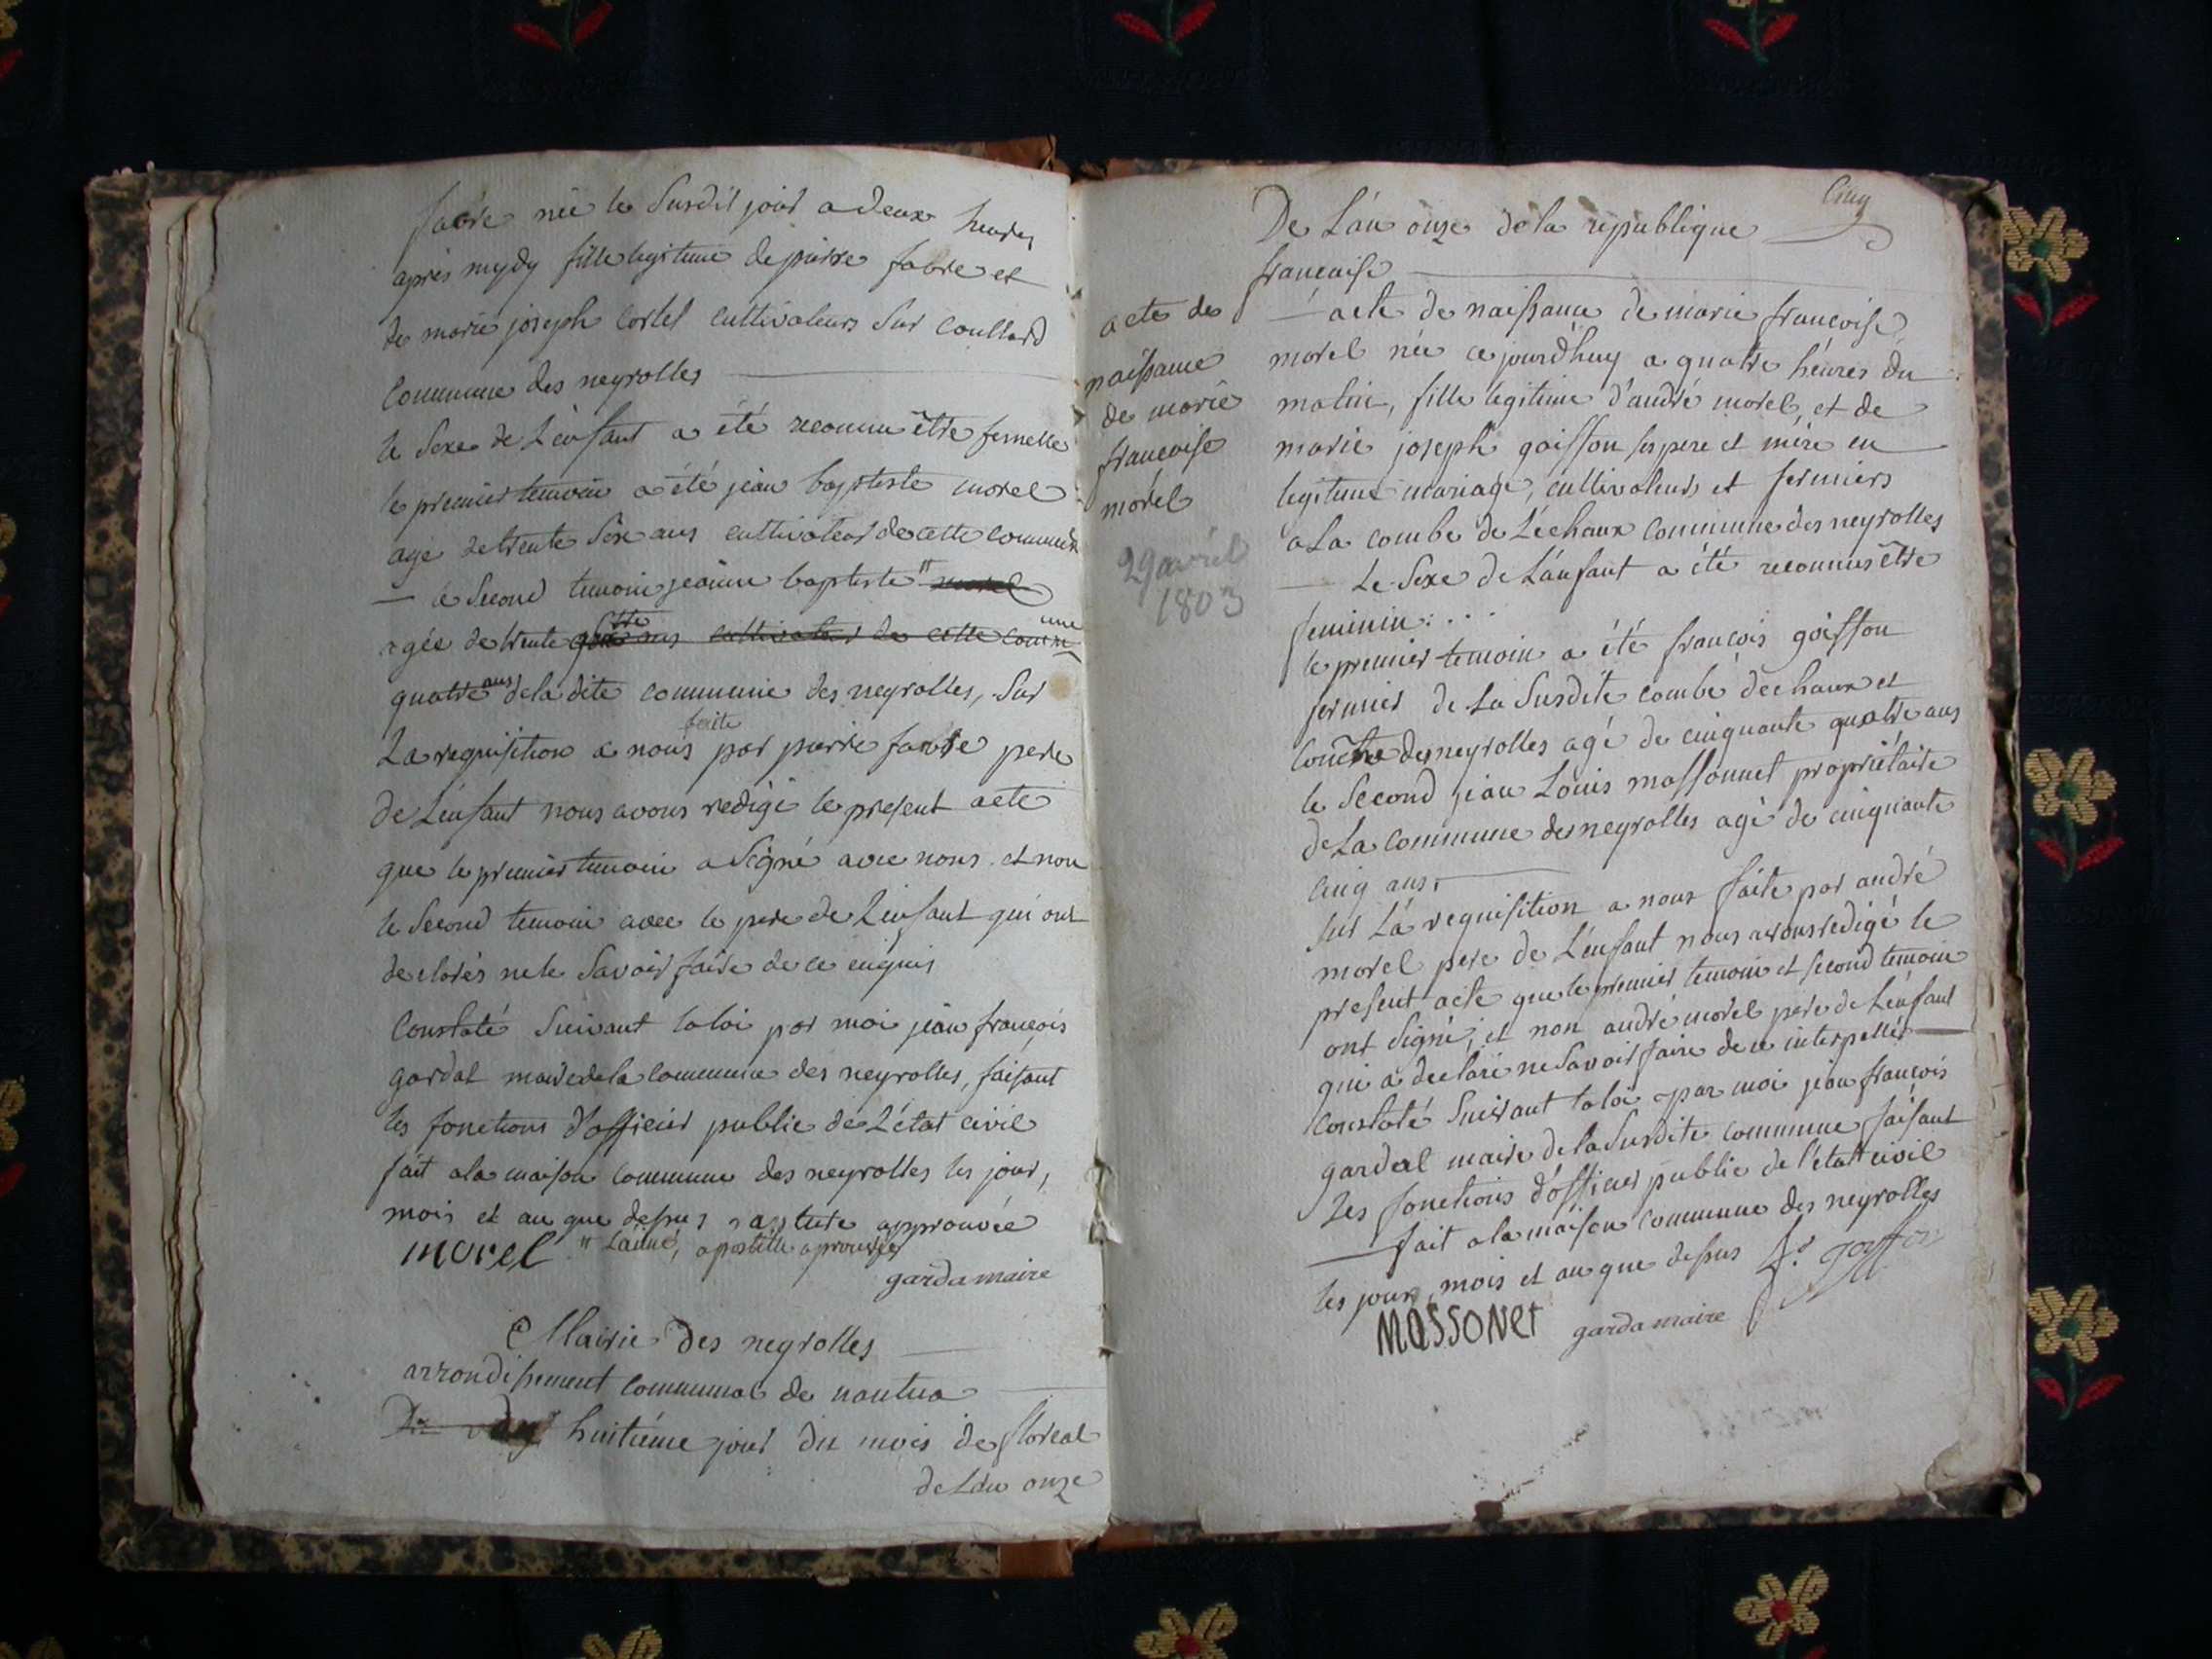 fabre née le Susdit jour a deux heures
apres mydy fille legitime de pierre fabre et
de marie joseph cortel cultivateurs Sur Coullard
Commune des neyrolles
le Sexe de L'enfant a été reconnu être femelle
le premier temoin a été jean baptiste morel
agé de trente Six ans cultivateur de cette commune
le Second temoin jeanne baptiste " morel
agée de trente ans cultivateur de cette commune
quatre ans de la dite commune des neyrolles, Sur
La requisition a nous faite par pierre fabre pere
de L'enfant nous avons redigé le present acte
que le premier temoin a Signé avec nous et non
le Second temoin avec le pere de L'enfant qui ont
declarés ne le Savoir faire de ce enquis
Constaté Suivant la loi par moi jean françois
gardat maire de la Commune des neyrolles, faisant
les fonctions d'officier public de L'état civil
fait a la maison commune des neyrolles les jour,
mois et an que dessus rature approuvée
morel " Lainé, apostille aprouvée
garda maire
Mairie Des neyrolles
arrondissement communal de nantua
Du huitième jour du mois de floreal
de L'an onze
Cinq
De L'an onze de la republique
françaisse
acte de
naissance
de marie
francoise
morel
29 avril
1803
acte de naissance de marie francoise
morel née ce jourdhuy a quatre héures du
matin, fille legitime d'andré morel et de
marie joseph goiffon ses pere et mère en
legitime mariage, cultivateurs et fermiers
a La combe de Léchaux commune des neyrolles
Le Sexe de L'anfant a été reconnus être
feminin . . .
le premier temoin a été françois goiffon
fermier de La Susdite combe dechaux et
des neyrolles agé de cinquante quatre ans
le Second jean Louis massonnet propriétaire
de La commune des neyrolles agé de cinquante
Cinq ans.
Sur La requisition a nous faite par andré
morel pere de L'enfant nous avons redigé le
present acte que le premier temoin et second temoin
ont Signé, et non andré morel pere de L'enfant
qui a declaré ne Savoir faire de ce interpellé
Constaté Suivant la loi par moi jean françois
gardat maire de la Susdite commune faisant
les fonctions d'officier public de l'état civil
fait a la maison commune des neyrolles
les jour, mois et an que dessus f. goiffon
MASSONET garda maire